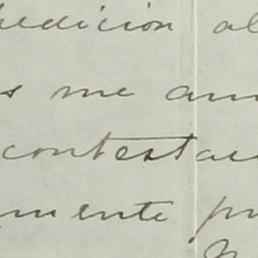 pedicion al
s me am
contestac
mente pr